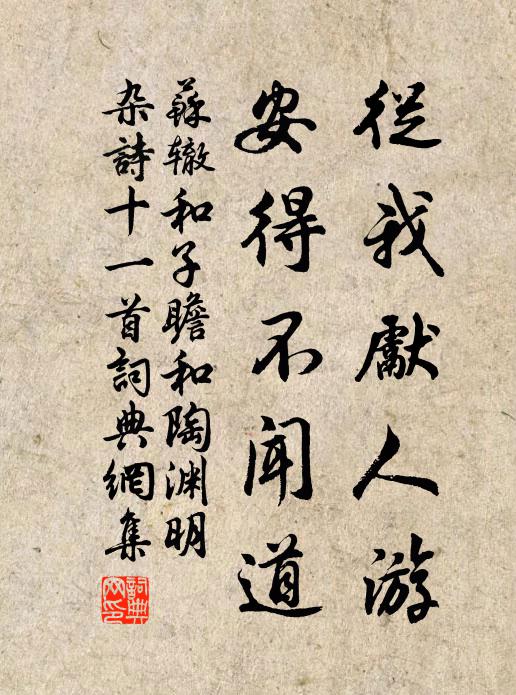 從我獻人游
安得不闻道
蘇辙和子瞻和陶渊明
杂詩十一首詞典網集
詞典
网印